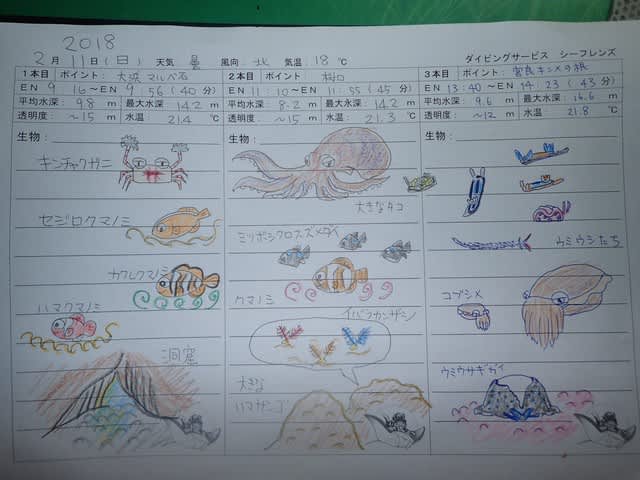 2018
2月 11日(日) 天気 曇 風向 北 気温 18℃
ダイビングサービス シーフレンズ
1本目 ポイント: 大浜マルベ石
EN 9:16〜EN 9:56 (40分)
平均水深: 9.8 m 最大水深: 14.2 m
透明度: 〜15 m 水温 21.4 ℃
生物:
キンチャクガニ
セジロクマノミ
カクレクマノミ
ハマクマノミ
洞窟
2本目 ポイント:
EN 11:10〜EN 11:55 (45分)
平均水深: 8.2 m 最大水深: 14.2 m
透明度: 〜15 m 水温 21.3 ℃
生物:
大きなタコ
ミツボシクロスズメダイ
クマノミ
イバラカンザシ
大きな
ハマサンゴ
3本目 ポイント: 宮良キンメの根
EN 13:40〜EN 14:23 (43分)
平均水深: 9.6 m 最大水深: 16.6 m
透明度: 〜12 m 水温 21.8 ℃
生物:
ウミウシたち
コブシメ
ウミウサギガイ